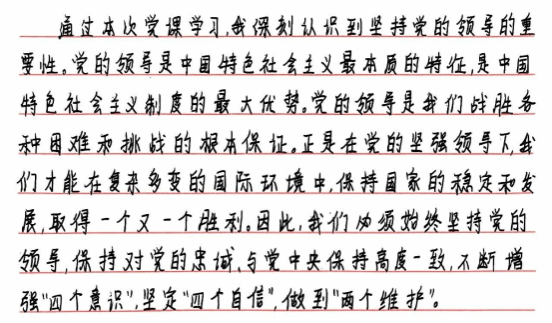 通过本次党课学习,我深刻认识到坚持党的领导的重
要性。党的领导是中国特色社会主义最本质的特征,是中国
特色社会主义制度的最大优势。党的领导是我们战胜各
种困难和挑战的根本保证。正是在党的坚强领导下,我
们才能在复杂多变的国际环境中,保持国家的稳定和发
展,取得一个又一个胜利。因此,我们必须始终坚持党的
领导,保持对党的忠诚,与党中央保持高度一致,不断增
强"四个意识",坚定"四个自信",做到"两个维护"。